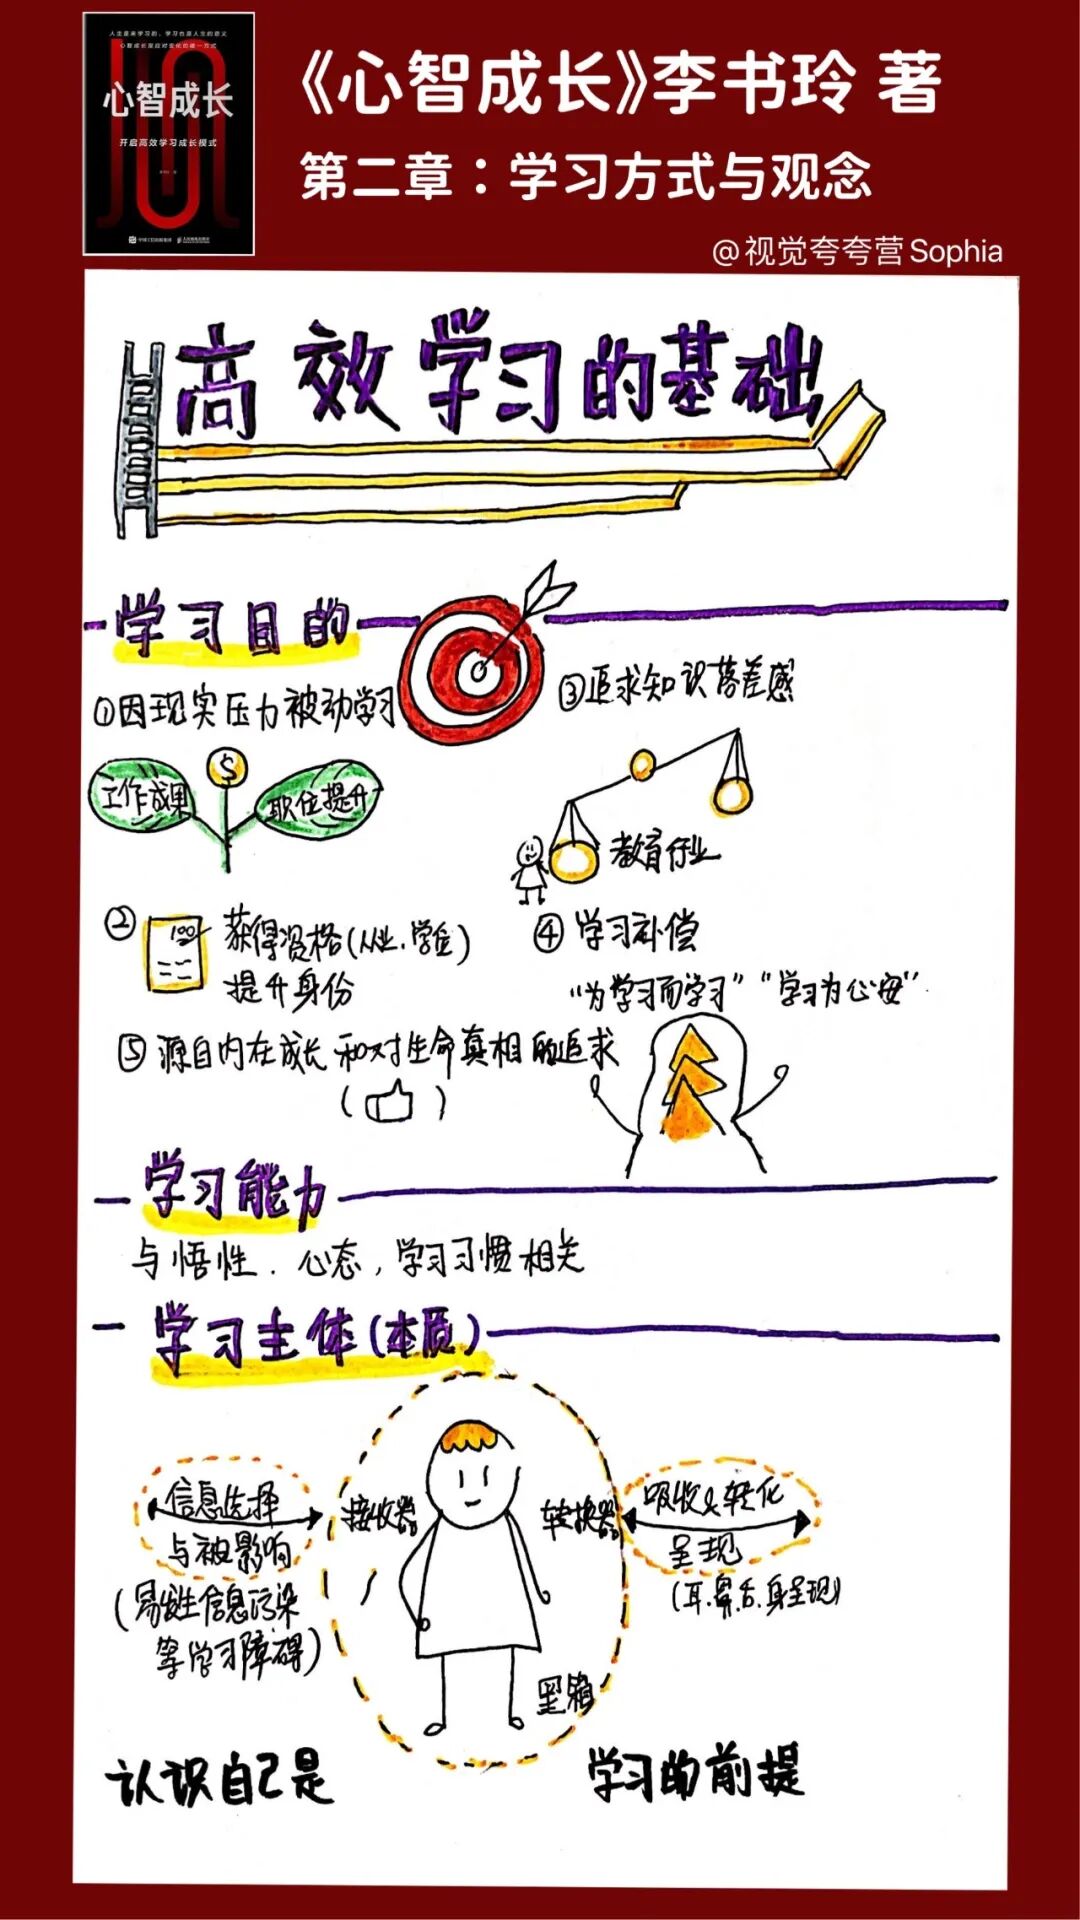 人生是来学习的，学习也是人生的意义
心智成长是应对变化的唯一方式
心智成长
开启高效学习成长模式
《心智成长》李书玲 著
第二章：学习方式与观念
@视觉夸夸营Sophia
高效学习的基础
学习目的
①因现实压力被动学习
工作成果
$
职位提升
②
100
获得资格(从业、学位)
提升身份
③追求知识落差感
教育行业
④学习补偿
“为学习而学习”“学习为心安”
⑤源自内在成长和对生命真相的追求
( )
学习能力
与悟性、心态,学习习惯相关
学习主体(本质)
信息选择
与被影响
(易发生信息污染
等学习障碍)
接收器
转换器
吸收&转化
呈现
(耳、鼻、舌、身呈现)
黑箱
认识自己是
学习的前提